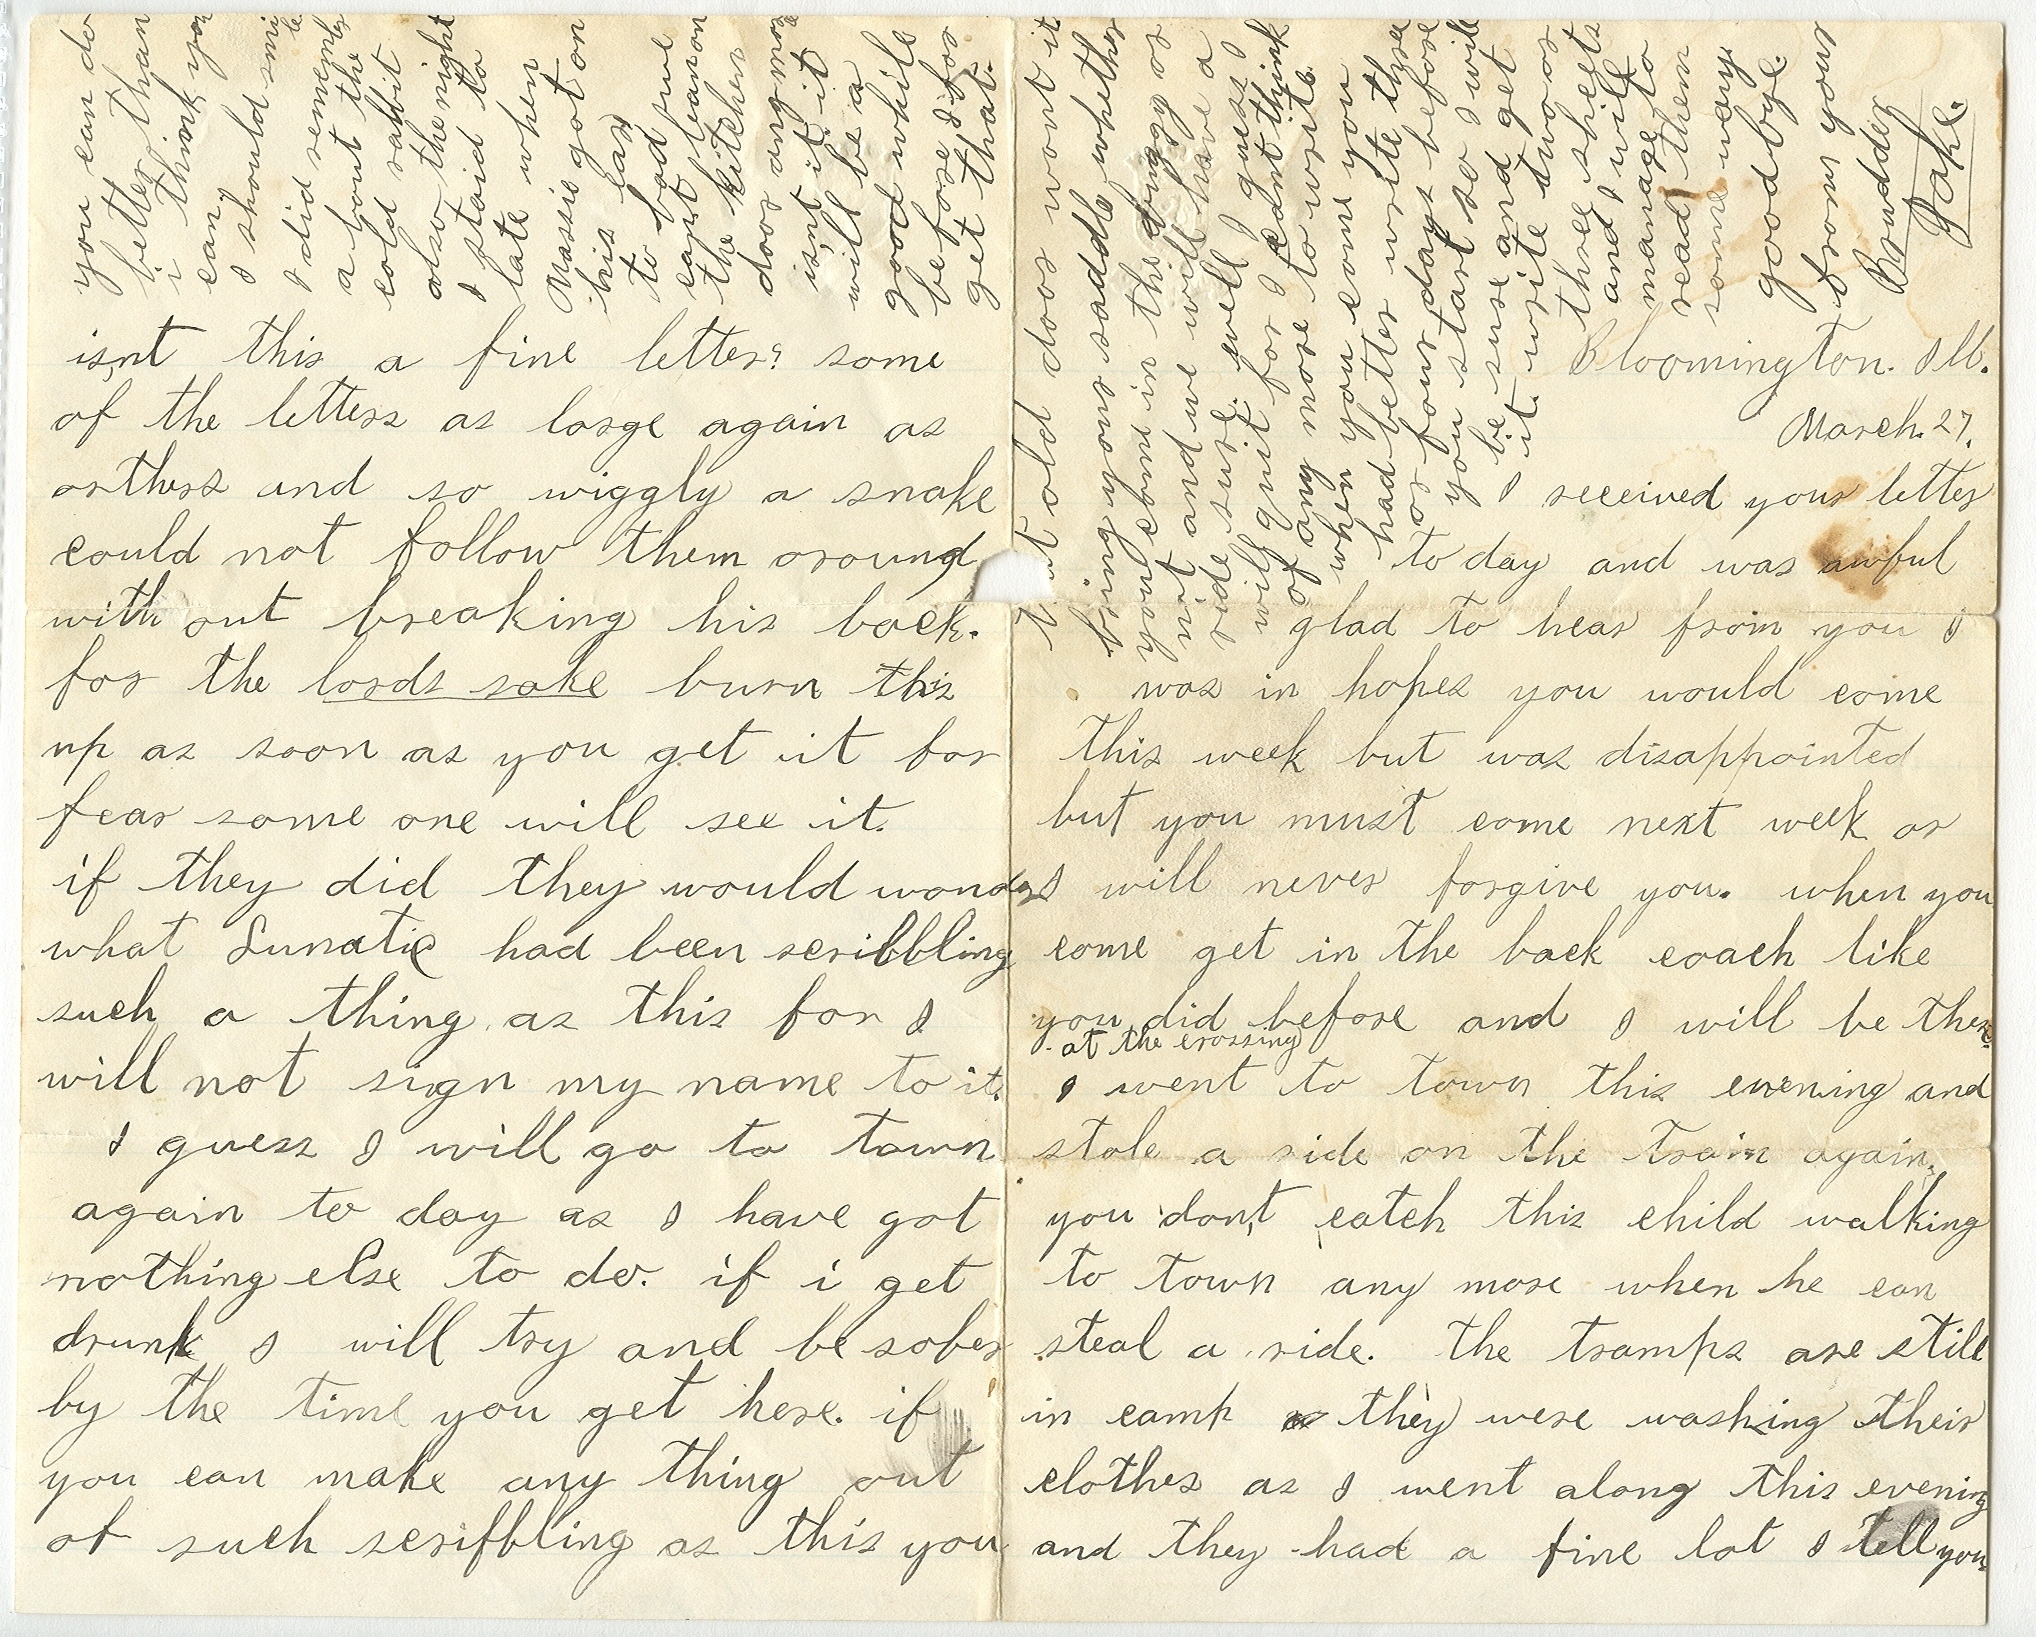 Bloomington. Ill.
March. 27.
I received your letter
to day and was awful
glad to hear from you I
was in hopes you would come
this week but was disappointed
but you must come next week or
I will never forgive you. when you
come get in the back coach like
you did before and I will be there
at the crossing
I went to town this evening and
stole a ride on the train again,
you don,t catch this child walking
to town any more when he can
steal a ride. the tramps are still
in camp they were washing their
clothes as I went along this evening
and they had a fine lot I tell you
isn,t this a fine letter? some
of the letters as large again as
orthers and so wiggly a snake
could not follow them around
with out breaking his back.
for the lords sake burn this
up as soon as you get it for
fear some one will see it.
if they did they would wonder
what Lunatic had been scribbling
such a thing as this for I
will not sign my name to it.
I guess I will go to town
again to day as I have got
nothing else to do. if i get
drunk I will try and be sober
by the time you get here. if
you can make any thing out
of such scribbling as this you
you can do
better than
i think you
can,
I should smile
I did remember
a bout the
cold rabbit
also the night
I staid to
late when
Massie got on
his ear
to bad we
cant lean on
the kitchen
door any more
isn't it it
will be a
good while
before I for
get that.
that old door wont it
bring your saddle whether
you come in the buggy or
not and we will have a
ride sure. well I guess I
will quit for I cant think
of any more to write.
when you come you
had better write three
or four days before
you start so I will
be sure and get
it. write two or
three sheets
and I will
manage to
read them
some way
good bye.
from your
Brudder
Jake.